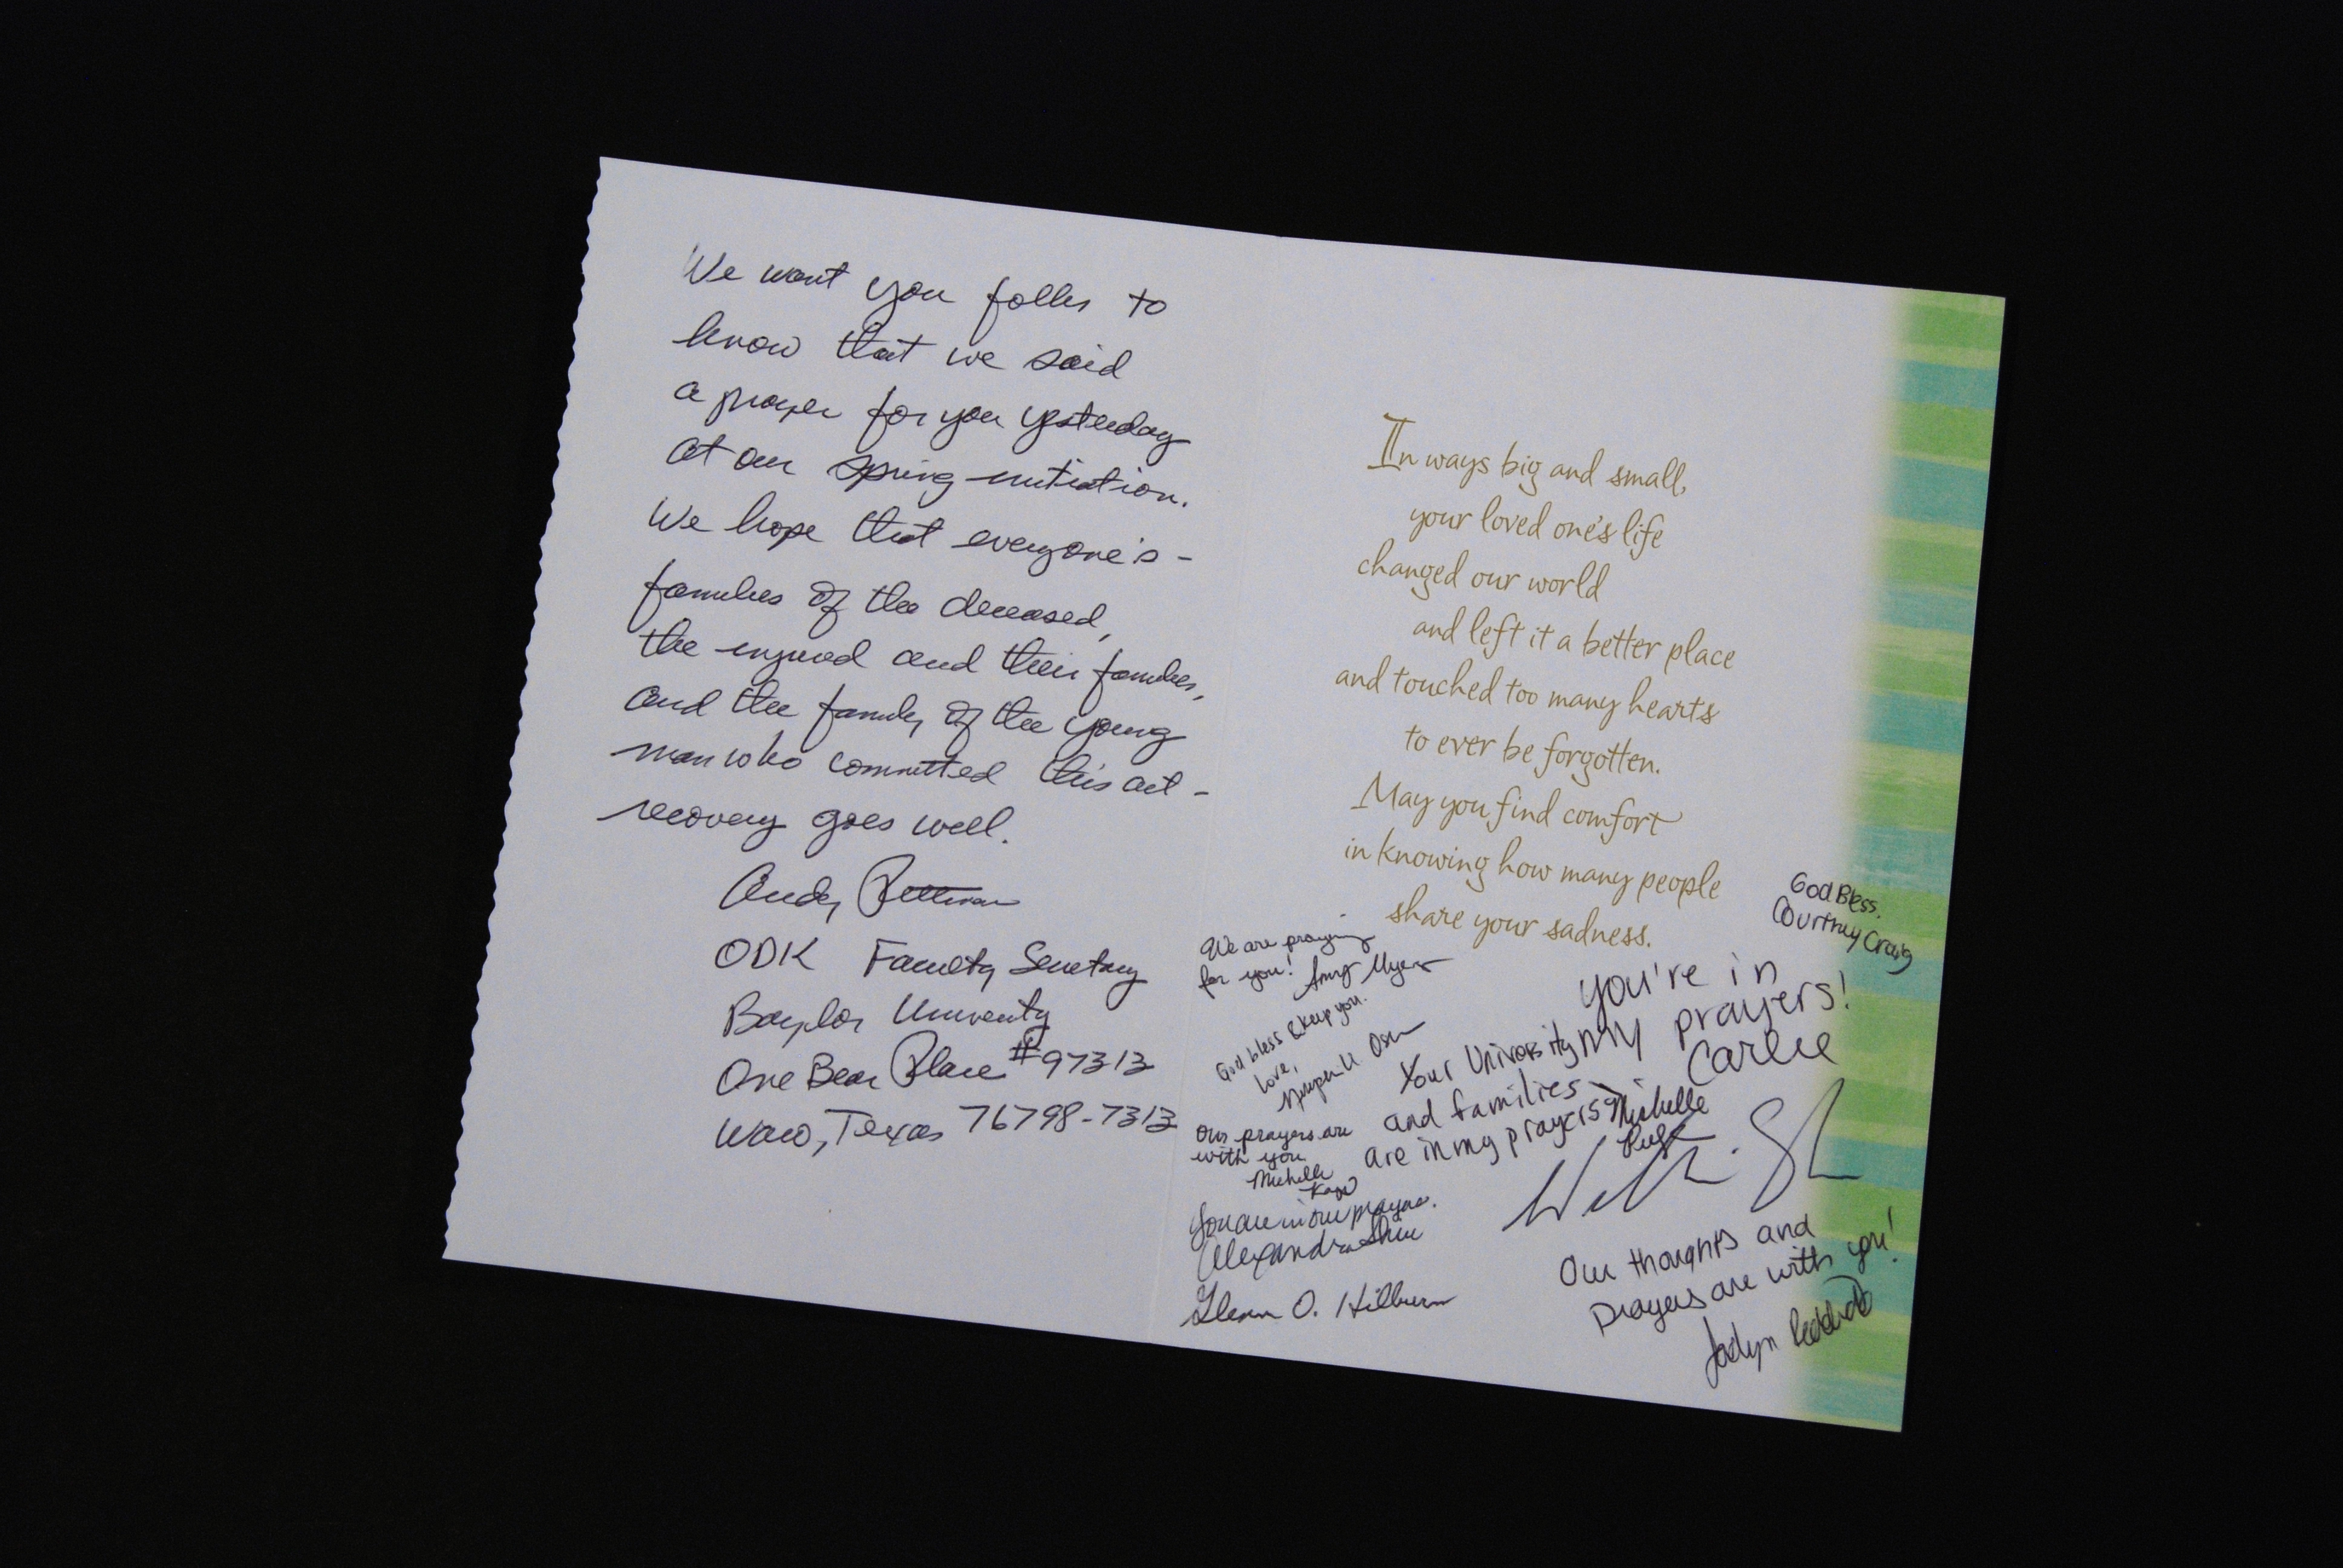 We want you folks to
know that we said
a prayer for you yesterday
at our spring initiation.
We hope that everyone's -
families of the deceased,
the injured and their families,
and the family of the young
man who committed this act -
recovery goes well.
Andy Pittman
ODK Faculty Secretary
Baylor University
One Bear Place #97313
Waco, Texas 76798-7313
In ways big and small,
your loved one's life
changed our world
and left it a better place
and touched too many hearts
to ever be forgotten.
May you find comfort
in knowing how many people
share your sadness.
God Bless.
Courtney Craig
We are praying
for you! Amy Myers
you're in
my prayers!
Carlie
God bless & keep you.
Love,
Your University
and families
are in my prayers
Michelle
Our prayers are
with you
Michelle
You are in our prayers.
Alexandra
Glenn O. Hilburn
Our thoughts and
Prayers are with you!
Jaclyn